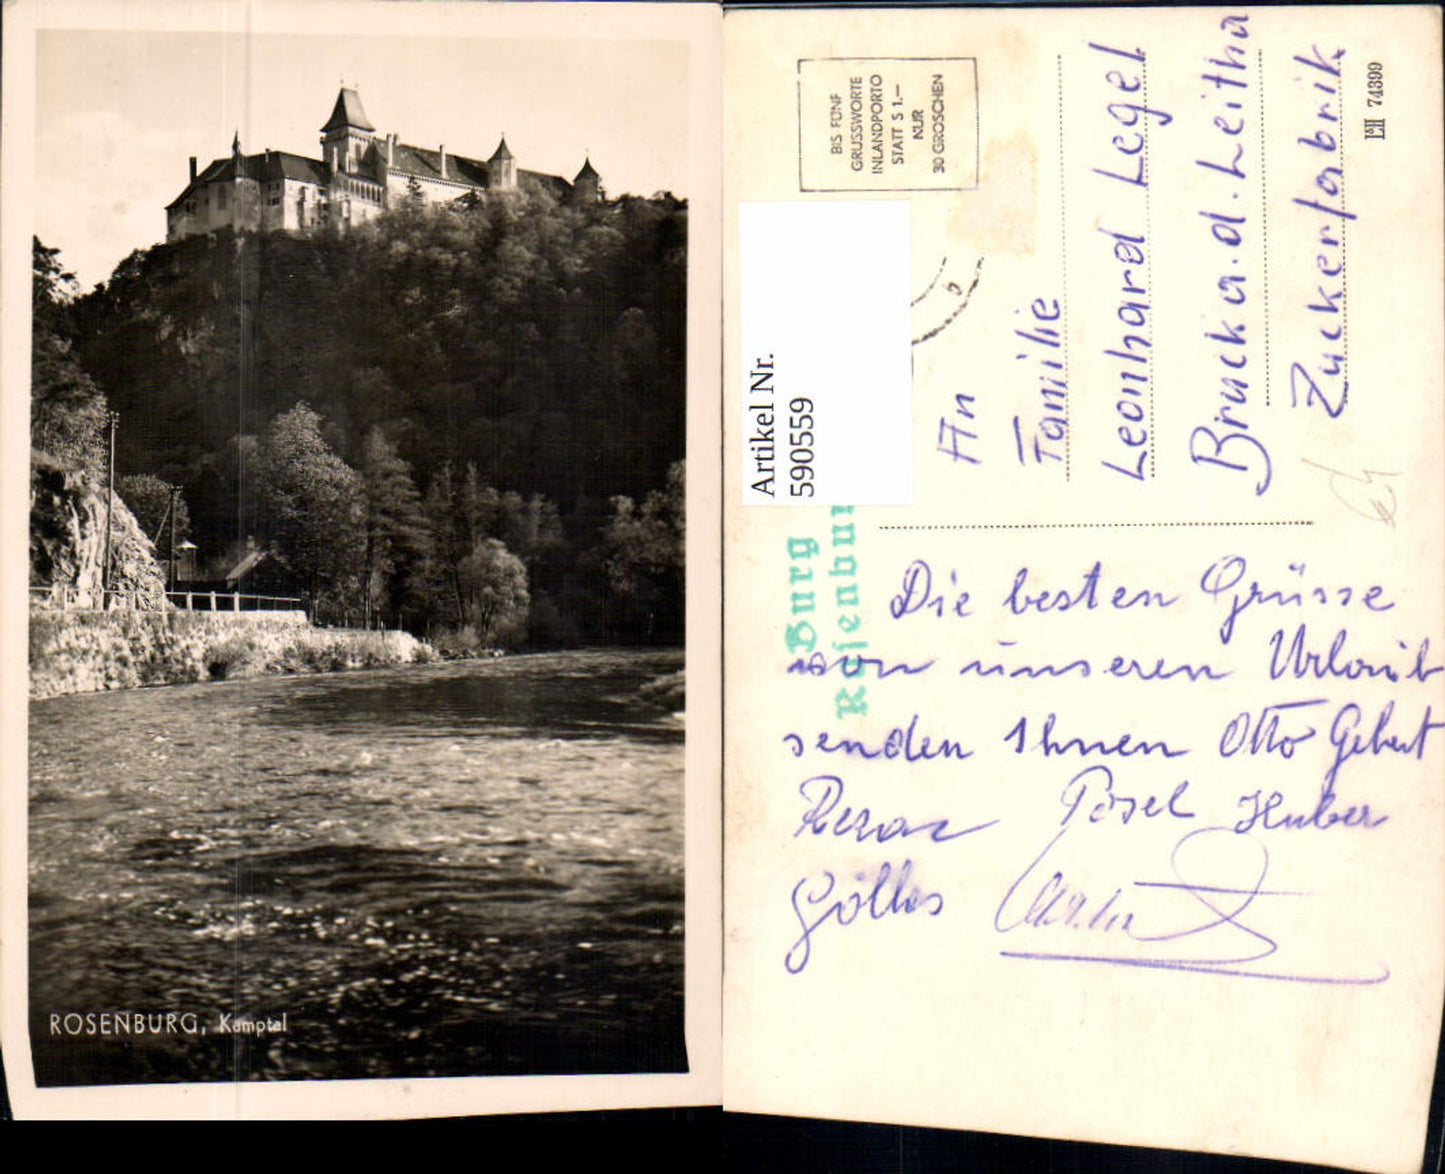 ROSENBURG, Kamptal
BIS FÜNF
GRUSSWORTE
INLANDPORTO
STATT S 1.—
NUR
30 GROSCHEN
Artikel Nr.
590559
Burg
Rosenburg
An
Familie
Leonhard Legel
Bruck a.d. Leitha
Zuckerfabrik
74399
Die besten Grüsse
von unseren Urlaub
senden Ihnen Otto
Huber